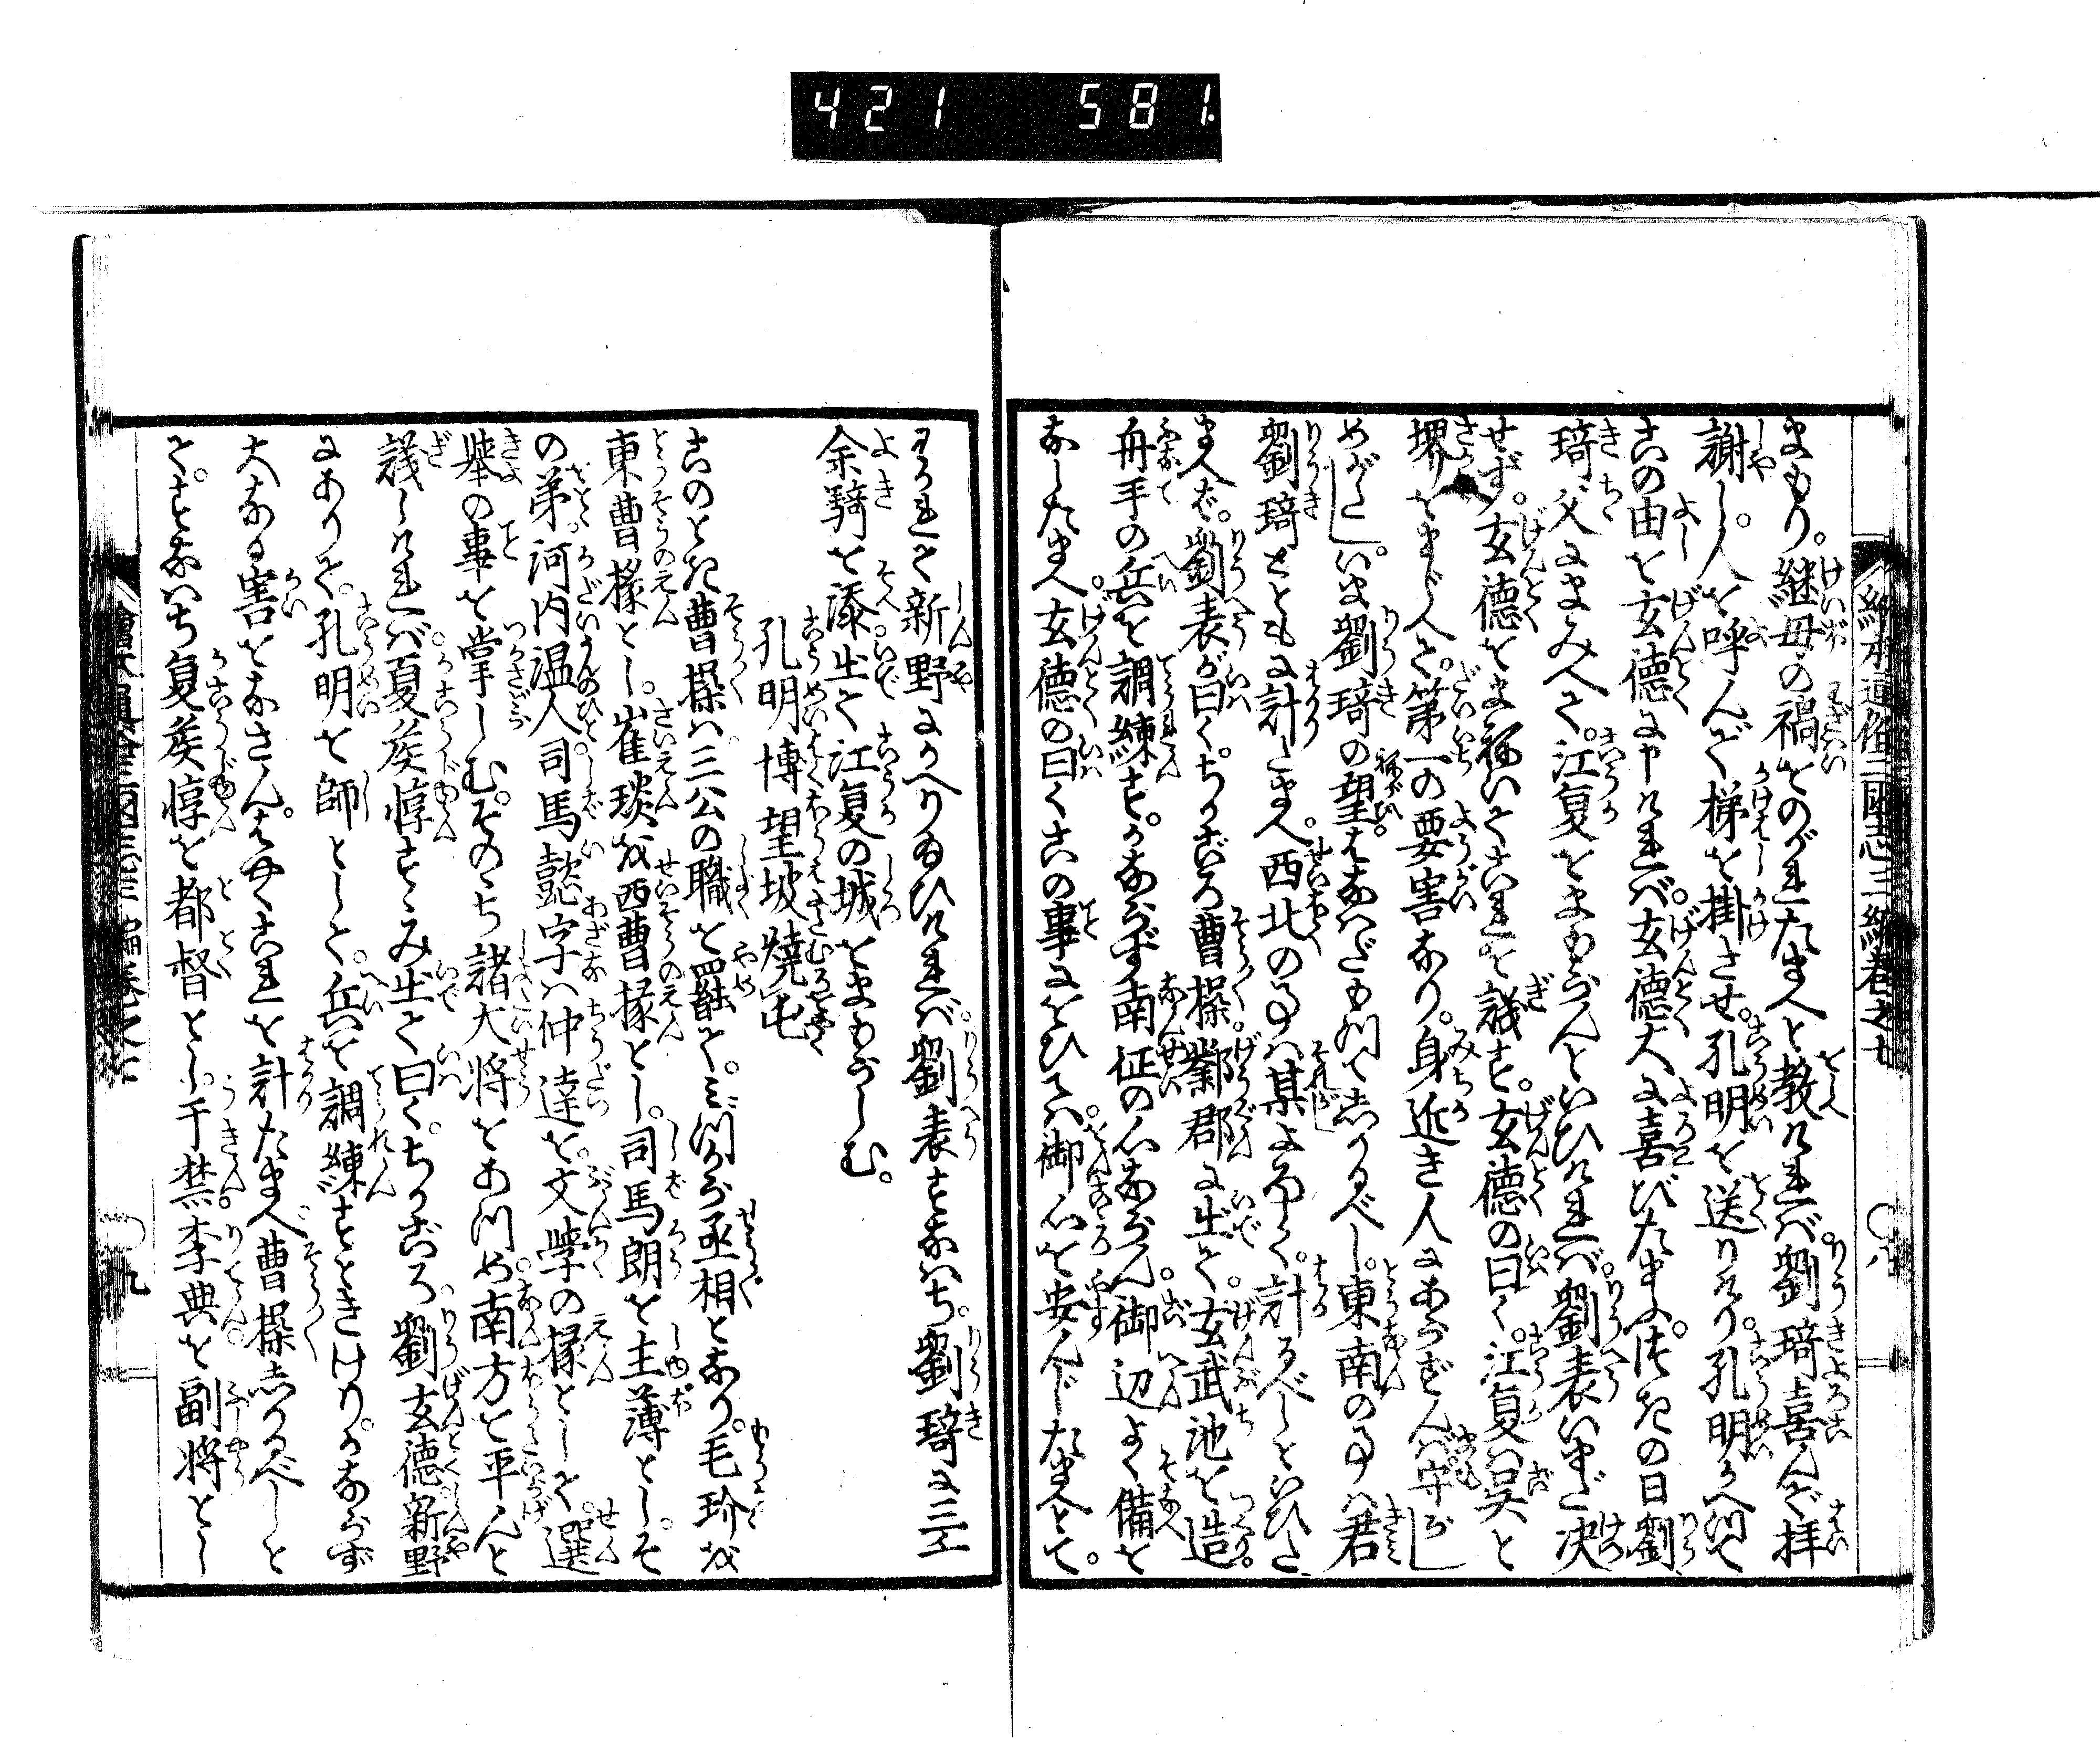 421 581
繪本通俗三國志三編卷之七 〇八
まもり。継母の禍をのがれたまへと教ければ。劉琦喜んで拝
謝し。人を呼んで梯を掛させ。孔明を送りけり。孔明かへつて
この由を玄徳に申ければ。玄徳大に喜びたまふ。つぎの日劉
琦父にまみへて。江夏をまもらんといひければ。劉表いまだ決
せず。玄徳をまねいてこれを議す。玄徳の曰く。江夏は呉と
堺をまじへて。第一の要害なり。身近き人にあらずんば守がし
めがたし。いま劉琦の望こそなへだもつてしかるべし。東南の事は君
劉琦とともに計たまへ。西北の事は某よろしく。計るべしといひた
まへば。劉表が曰く。ちかごろ曹操鄴郡に出て。玄武池を造。
舟手の兵を調練す。かならず南征の心ならん。御辺よく備を
なしたまへ。玄徳の曰くこの事にをひては。御心を安んじたまへとて。
それより新野にかへりゐひければ。劉表すなはち。劉琦に三千
余騎を添。出て江夏の城をまもらしむ。
孔明博望坡焼屯
このとき曹操は三公の職を罷て。みづから丞相となり。毛玠を
東曹掾とし。崔琰を西曹掾とし。司馬朗を主薄とし。そ
の弟。河内温人。司馬懿字は仲達を。文学の掾として。選
挙の事を掌しむ。そのゝち諸大将をあつめ。南方を平んと
議しければ。夏侯惇すゝみ出て曰く。ちかごろ劉玄徳新野
にありて。孔明を師として。兵を調練すときけり。かならず
大なる害をなさん。はやくこれを計たまへ。曹操しかるべしと
て。すなはち夏侯惇を都督とし。于禁。李典を副将とし
繪本通俗三國志三編卷之七 〇九